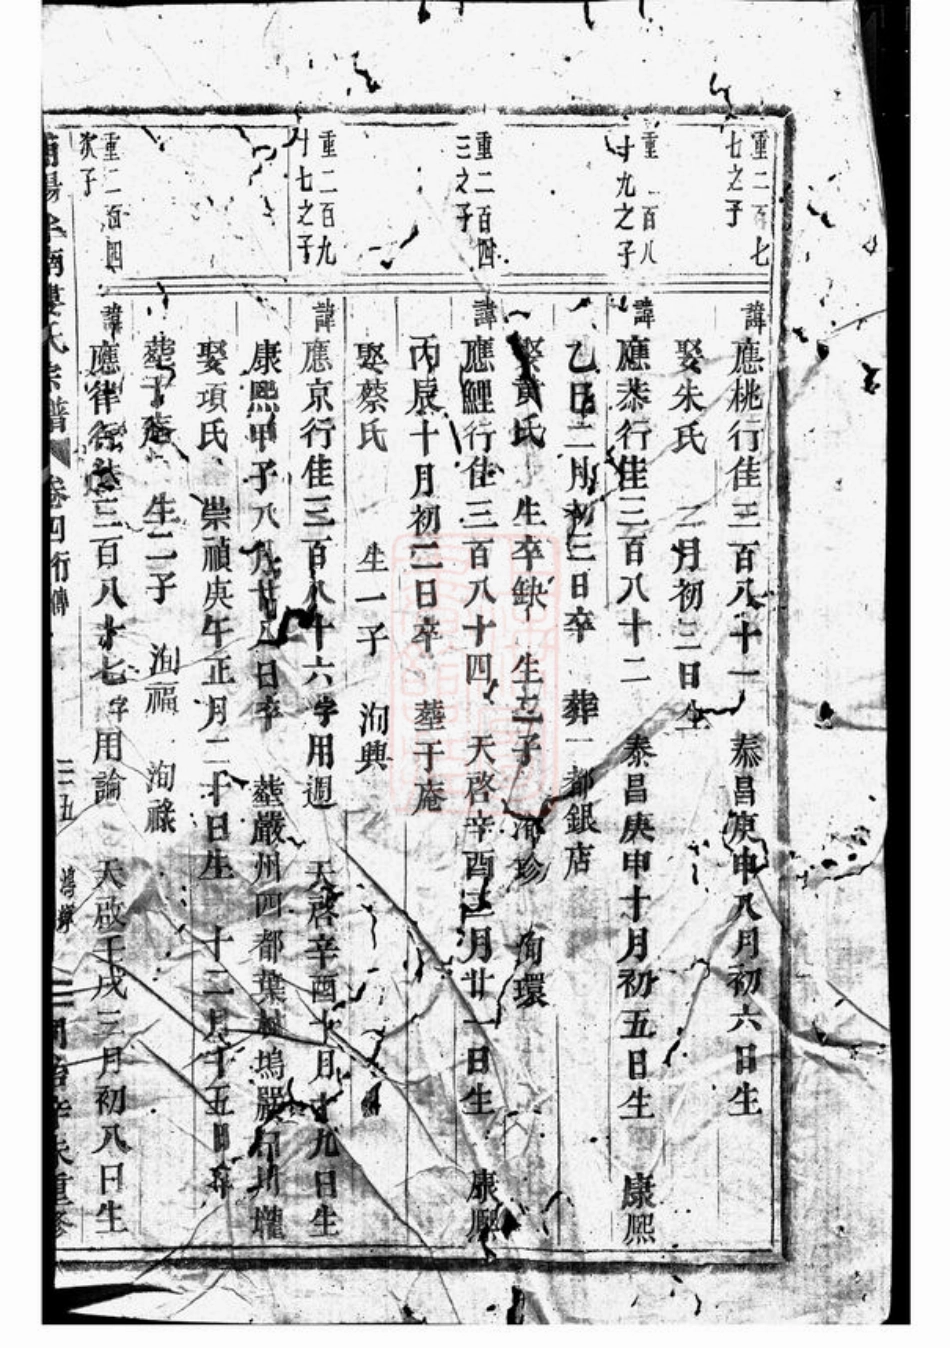 重二百七
七之子
諱應桃行佳三百八十一 泰昌庚申八月初六日生
娶朱氏 二月初三日生
重一百八
十九之子
諱應恭行佳三百八十二 泰昌庚申十月初五日生 康熙
乙巳二月初三日卒 葬一都銀店
娶黄氏 生卒缺 生二子 洵珍 洵環
重二百四
三之子
諱應鯉行佳三百八十四 天啓辛酉三月廿一日生 康熙
丙辰十月初二日卒 塟于庵
娶蔡氏 生一子 洵興
重二百九
十七之子
諱應京行佳三百八十六字用週 天啓辛酉十月十九日生
康熙甲子八月廿八日卒 塟嚴州四都葉 塢嚴 壠
娶項氏 崇禎庚午正月二十日生 十二月十五日卒
塟于庵 生二子 洵福 洵祿
重二百四
次子
諱應律行佳三百八十七字用論 天啟壬戌三月初八日生
氏宗譜 卷四行傳 三五 重修